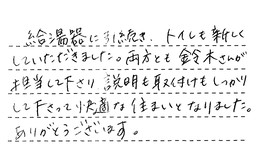 給湯器に引続き、トイレも新しく
していただきました。両方とも鈴木さんが
担当して下さり 説明も取付けもしっかり
して下さって快適な住まいとなりました。
ありがとうございます。